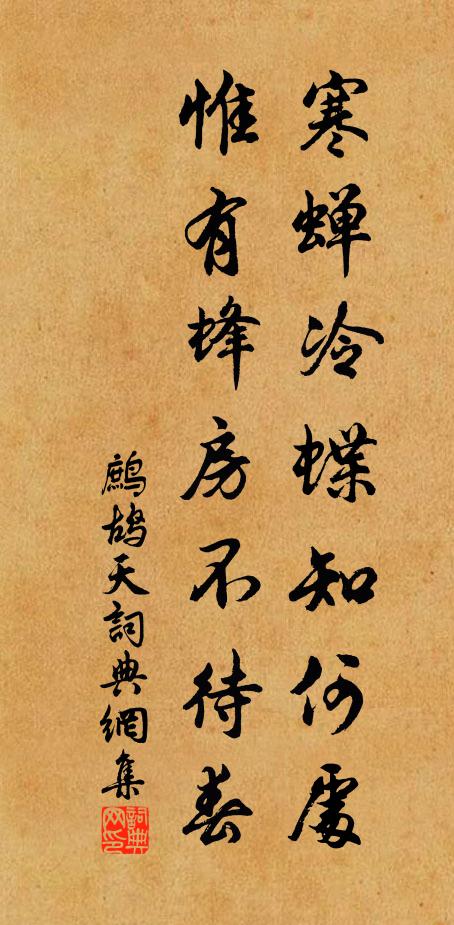 寒蝉冷蝶知何處
惟有蜂房不待春
鷓鴣天詞典網集
詞典网印